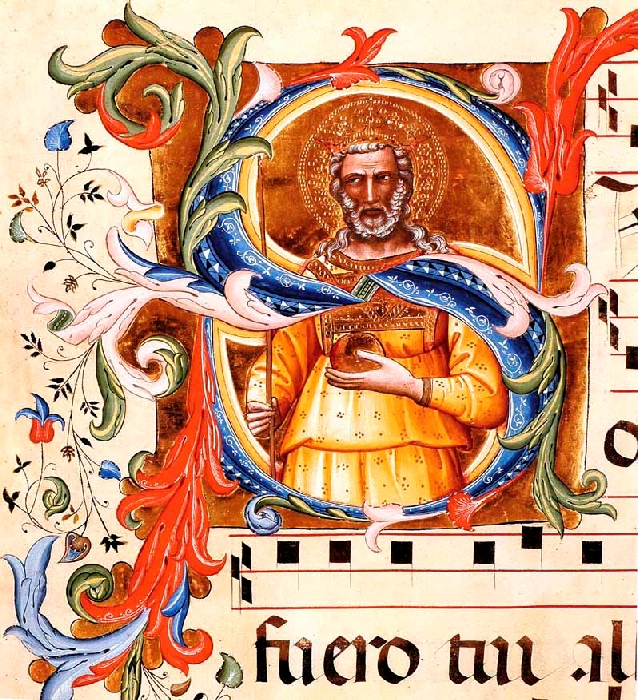 S o
fuero tui al